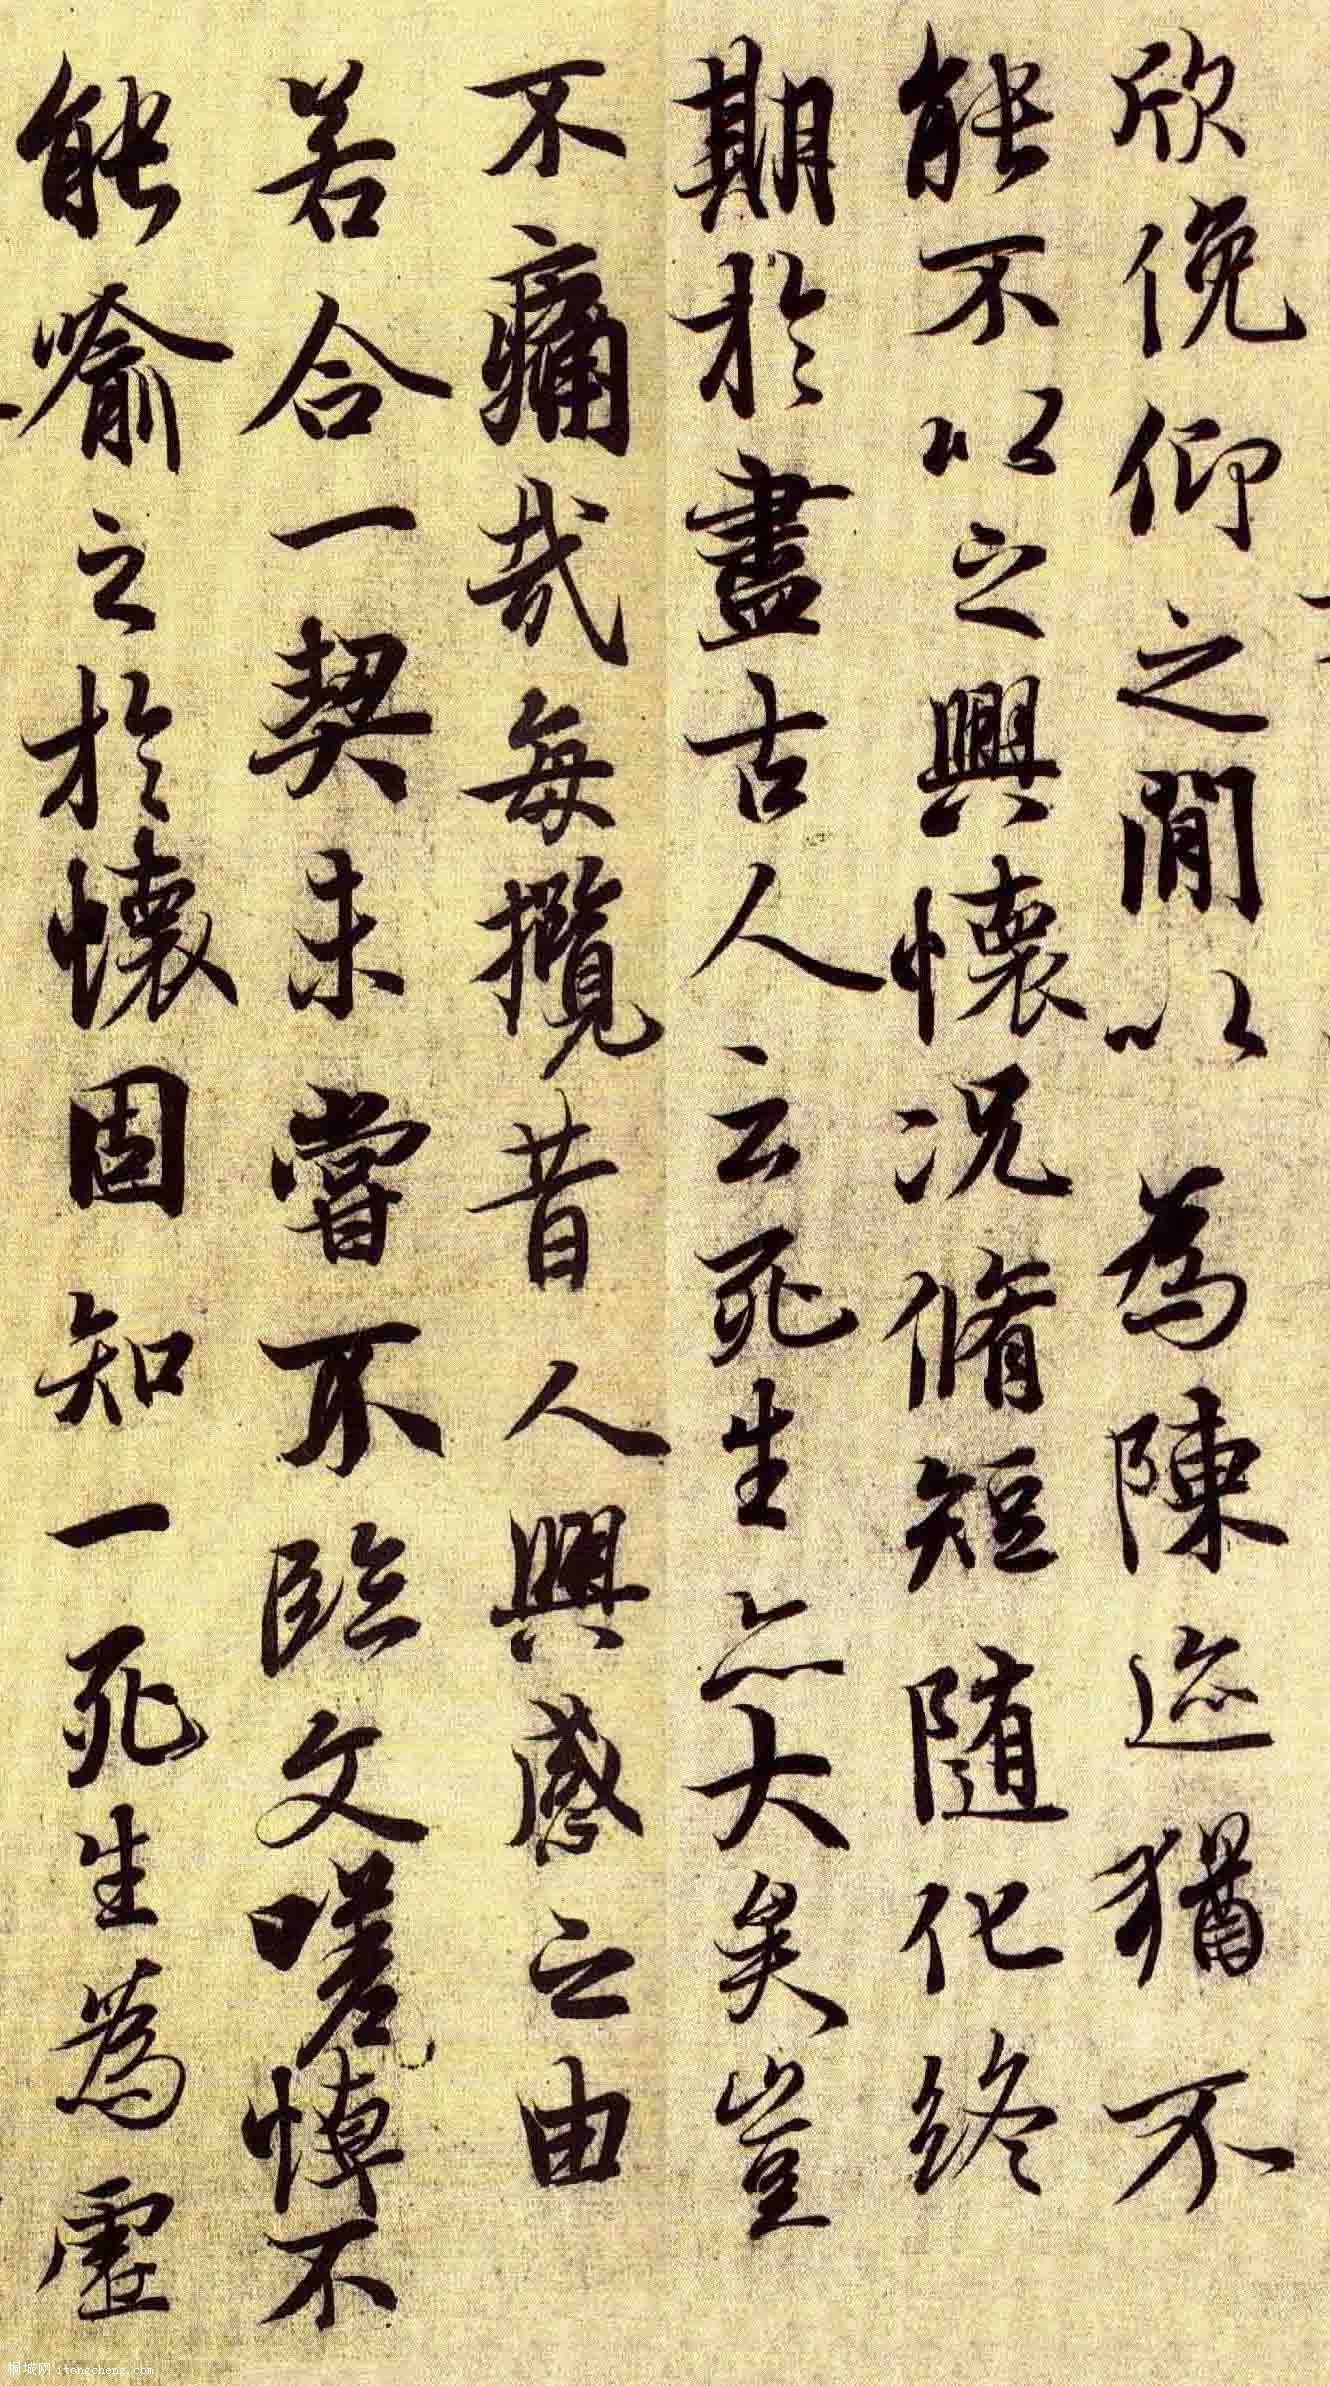 欣俛仰之閒以為陳迹猶不
能不以之興懷況脩短隨化終
期於盡古人云死生亦大矣豈
不痛哉每攬昔人興感之由
若合一契未嘗不臨文嗟悼不
能喻之於懷固知一死生為虛
桐城网 itongcheng.com